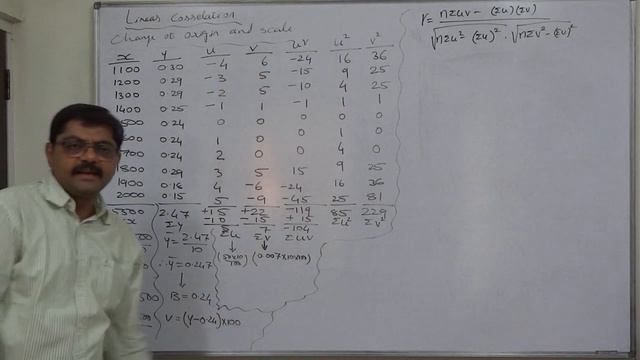 Linear Correlation
Change of origin and scale
x y u v uv u² v²
1100 0.30 -4 6 -24 16 36
1200 0.29 -3 5 -15 9 25
1300 0.29 -2 5 -10 4 25
1400 0.25 -1 1 -1 1 1
500 0.24 0 0 0 0 0
600 0.24 1 0 0 1 0
700 0.24 2 0 0 4 0
1800 0.29 3 5 15 9 25
1900 0.18 4 -6 -24 16 36
2000 0.15 5 -9 -45 25 81
5500 2.47 +15 +22 -119 85 229
x Σy -10 -15 +15 Σu² Σv²
5 7 -104
Σu Σv Σuv
ȳ = 2.47/10
∴ ȳ = 0.247
(0.007×10×100)
500 B = 0.24
v = (y-0.24)×100
r = nΣuv - (Σu)(Σv)
√nΣu² - (Σu)² · √nΣv² - (Σv)²